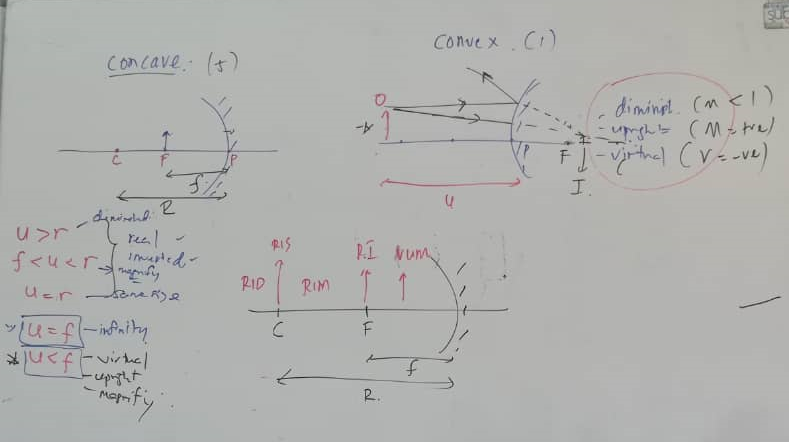 Concave: (5)
C F P
f
R
u > r
f < u < r
u = r
u = f
u < f
diminished
real
inverted
magnify
same size
infinity
virtual
upright
magnify
Convex. (1)
O
P F C
I
u
- diminish. (m < 1)
- upright (M = +ve)
- virtual (V = -ve)
RIS
R.I
RID RIM
C F
f
R.